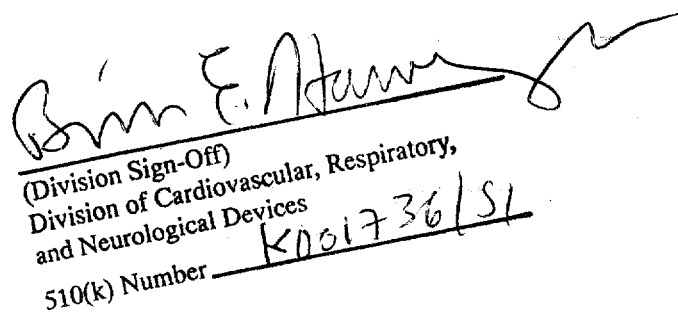 E.
(Division Sign-Off)
Division of Cardiovascular, Respiratory,
and Neurological Devices
510(k) Number K001736/S1